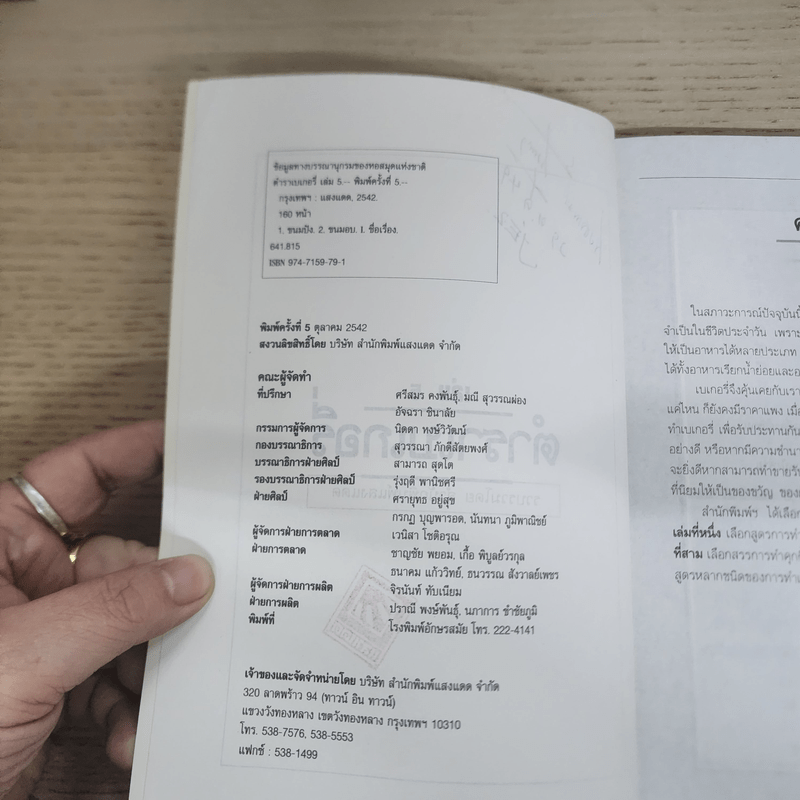 ข้อมูลทางบรรณานุกรมของหอสมุดแห่งชาติ
ตำราเบเกอรี่ เล่ม 5.-- พิมพ์ครั้งที่ 5.--
กรุงเทพฯ : แสงแดด, 2542.
160 หน้า
1. ขนมปัง. 2. ขนมอบ. I. ชื่อเรื่อง.
641.815
ISBN 974-7159-79-1
พิมพ์ครั้งที่ 5 ตุลาคม 2542
สงวนลิขสิทธิ์โดย บริษัท สำนักพิมพ์แสงแดด จำกัด
คณะผู้จัดทำ
ที่ปรึกษา ศรีสมร คงพันธุ์, มณี สุวรรณผ่อง
อัจฉรา ชินาลัย
กรรมการผู้จัดการ นิดดา หงษ์วิวัฒน์
กองบรรณาธิการ สุวรรณา ภักดีสัตยพงศ์
บรรณาธิการฝ่ายศิลป์ สามารถ สุดโต
รองบรรณาธิการฝ่ายศิลป์ รุ่งฤดี พานิชศรี
ฝ่ายศิลป์ ศรายุทธ อยู่สุข
กรกฎ บุญพารอด, นันทนา ภูมิพาณิชย์
ผู้จัดการฝ่ายการตลาด เวนิสา โชติอรุณ
ฝ่ายการตลาด ชาญชัย พยอม, เกื้อ พิบูลย์วรกุล
ธนาคม แก้ววิทย์, ธนวรรณ สังวาลย์เพชร
ผู้จัดการฝ่ายการผลิต จิรนันท์ ทับเนียม
ฝ่ายการผลิต ปราณี พงษ์พันธุ์, นภาการ ชำชัยภูมิ
พิมพ์ที่ โรงพิมพ์อักษรสมัย โทร. 222-4141
เจ้าของและจัดจำหน่ายโดย บริษัท สำนักพิมพ์แสงแดด จำกัด
320 ลาดพร้าว 94 (ทาวน์ อิน ทาวน์)
แขวงวังทองหลาง เขตวังทองหลาง กรุงเทพฯ 10310
โทร. 538-7576, 538-5553
แฟกซ์ : 538-1499
ในสภาวะการณ์ปัจจุบันนี้
จำเป็นในชีวิตประจำวัน เพราะ
ให้เป็นอาหารได้หลายประเภท
ได้ทั้งอาหารเรียกน้ำย่อยและ
เบเกอรี่จึงคุ้นเคยกับเรา
แค่ไหน ก็ยังคงมีราคาแพง
ทำเบเกอรี่ เพื่อรับประทานกัน
อย่างดี หรือหากมีความชำนา
จะยิ่งดีหากสามารถทำขาย
ที่นิยมให้เป็นของขวัญ
สำนักพิมพ์ฯ ได้เลือก
เล่มที่หนึ่ง เลือกสูตรการทำ
ที่สาม เลือกสรรการทำคุกกี้
สูตรหลากชนิดของการทำ